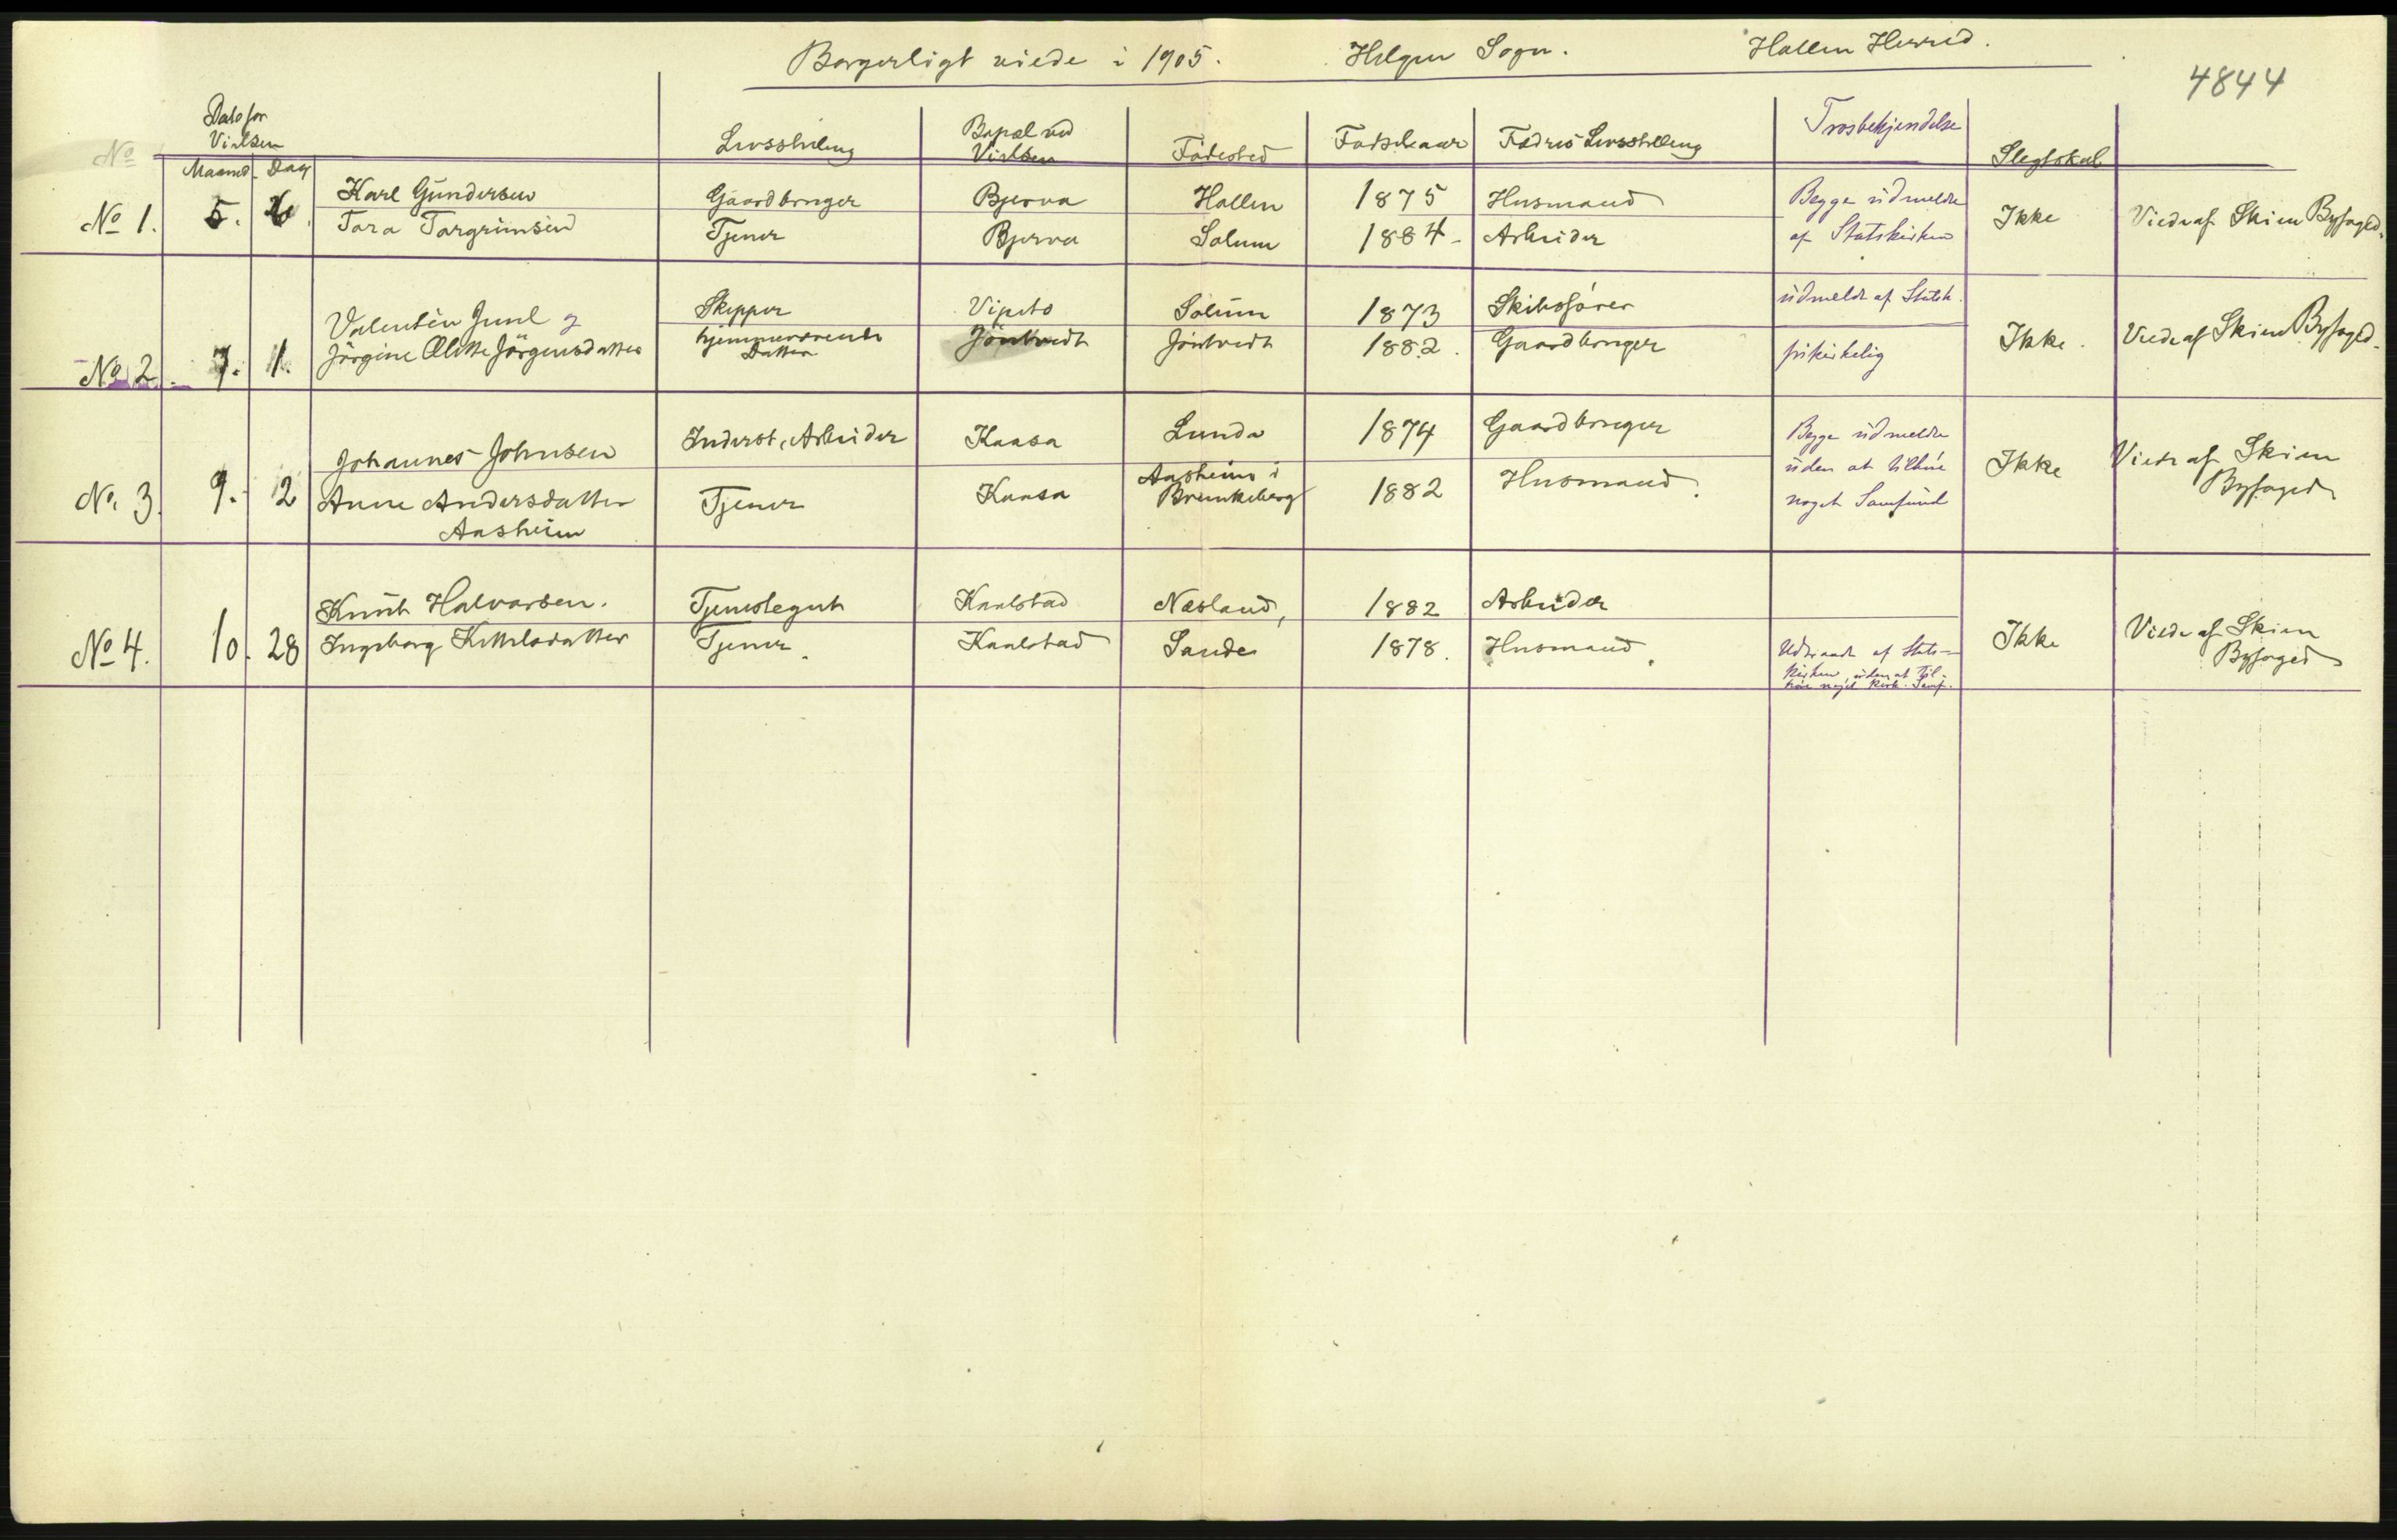 Borgerligt viede i 1905. Helgen Sogn. Hollen Herred.
4844
No
Dato for
Vielsen
Maaned Dag
Livsstilling
Bopæl ved
Vielsen
Fødested
Fødselsaar
Fædres Livsstilling
Trosbekjendelse
Slegtskab
No 1. 5. 6.
Karl Gundersen
Gaardbruger Bjerva Hollen 1875 Husmand
Tora Torgrimsen
Tjener Bjerva Solum 1884 - Arbeider
Begge udmeldte
af Statskirken
Ikke
Viede af Skien Byfoged.
No 2. 7. 1.
Valentin Juul og
Skipper Vipeto Solum 1873 Skibsfører
udmeldt af Statsk.
Jörgine Olette Jörgensdatter
hjemmeværende
Datter
Jöntvedt Jöntvedt 1882. Gaardbruger
frikirkelig
Ikke.
Viede af Skien Byfoged.
No. 3. 9. 2
Johannes Johnsen
Inderst, Arbeider Kaasa Lunde 1874 Gaardbruger
Anne Andersdatter
Aasheim
Tjener Kaasa
Aasheim i
Brunkeberg
1882 Husmand.
Begge udmeldte
uden at tilhøre
noget Samfund
Ikke
Viede af Skien
Byfoged
No 4. 10. 28
Knut Halvorsen.
Tjenestegut Kaalstad Næsland, 1882 Arbeider
Ingeborg Kittilsdatter
Tjener. Kaalstad Sande 1878. Husmand.
Udtraadt af Stats-
kirken, uden at til-
høre noget kirk. Samf.
Ikke
Viede af Skien
Byfoged